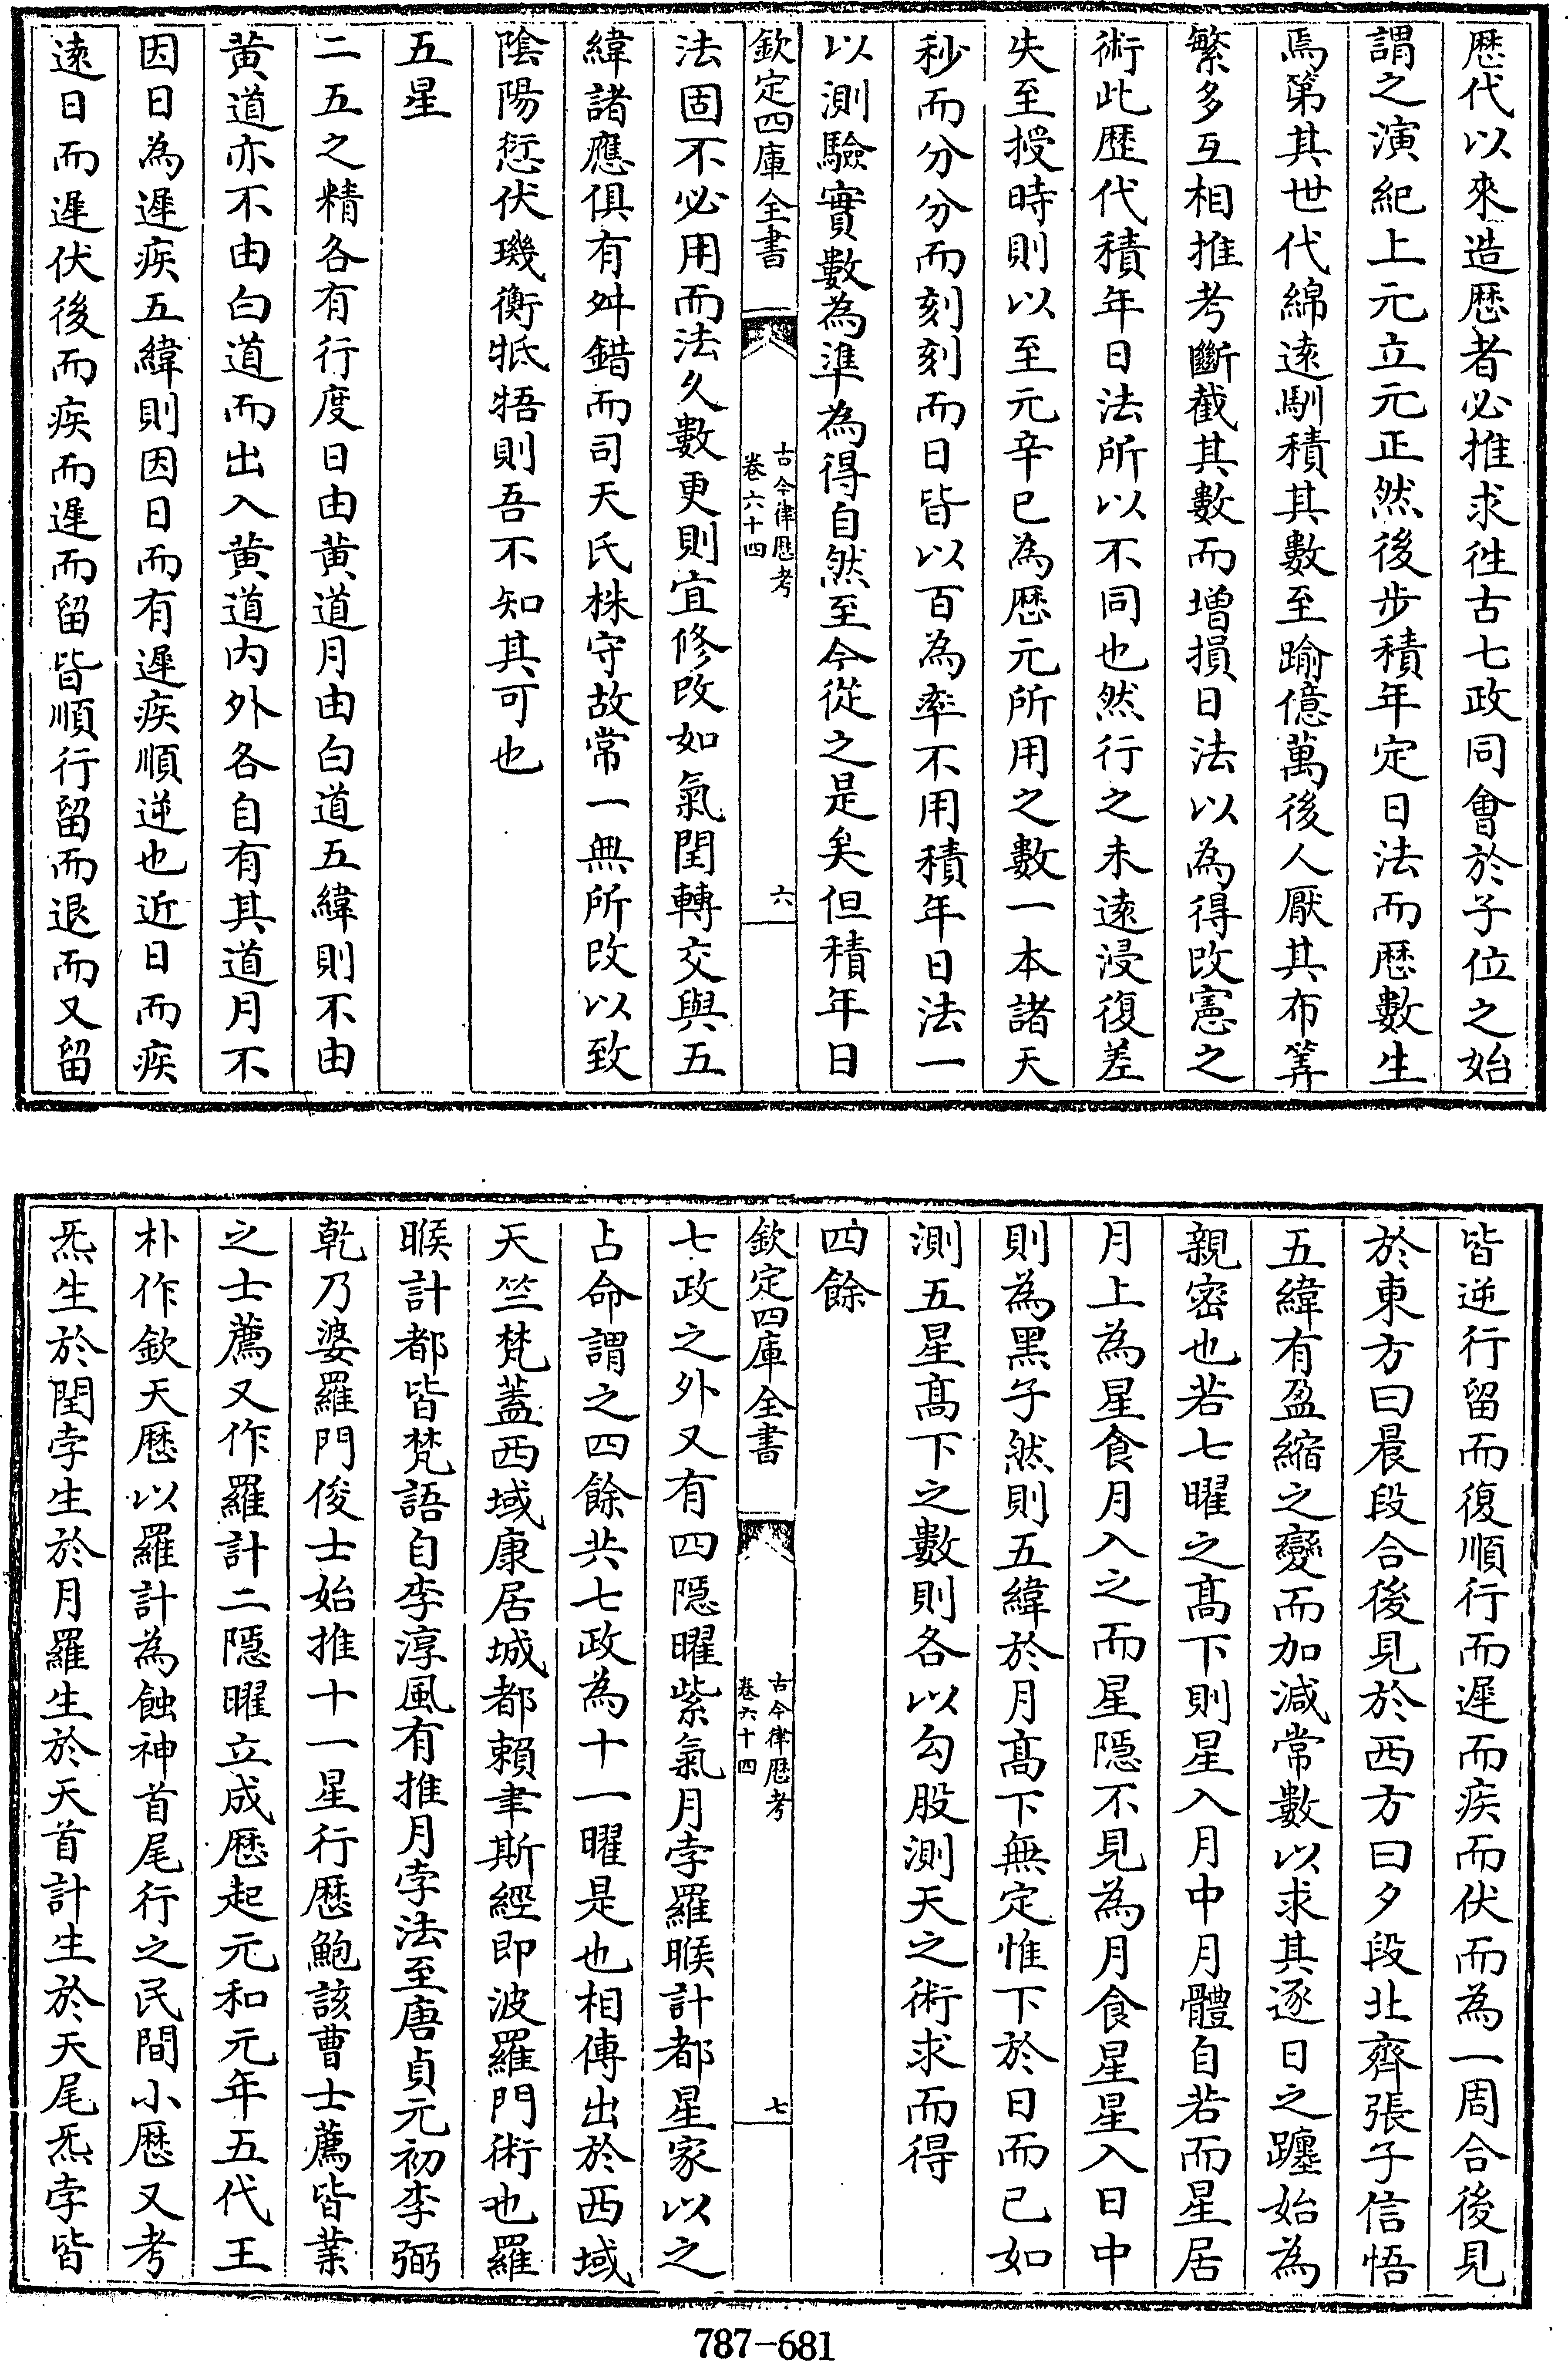 歴代以來造歴者必推求徃古七政同會於子位之始
謂之演紀上元立元正然後步積年定日法而歴數生
焉第其世代綿遠馴積其數至踰億萬後人厭其布筭
繁多互相推考斷截其數而增損日法以為得改憲之
術此歴代積年日法所以不同也然行之未遠浸復差
失至授時則以至元辛巳為歴元所用之數一本諸天
秒而分分而刻刻而日皆以百為率不用積年日法一
以測驗實數為準為得自然至今從之是矣但積年日
欽定四庫全書
古今律歴考
卷六十四
六
法固不必用而法久數更則宜修改如氣閏轉交與五
緯諸應俱有舛錯而司天氏株守故常一無所改以致
陰陽愆伏璣衡牴牾則吾不知其可也
五星
二五之精各有行度日由黄道月由白道五緯則不由
黄道亦不由白道而出入黄道内外各自有其道月不
因日為遲疾五緯則因日而有遲疾順逆也近日而疾
遠日而遲伏後而疾而遲而留皆順行留而退而又留
皆逆行留而復順行而遲而疾而伏而為一周合後見
於東方曰晨段合後見於西方曰夕段北齊張子信悟
五緯有盈縮之變而加減常數以求其逐日之躔始為
親密也若七曜之髙下則星入月中月體自若而星居
月上為星食月入之而星隠不見為月食星星入日中
則為黑子然則五緯於月髙下無定惟下於日而已如
測五星髙下之數則各以勾股測天之術求而得
四餘
欽定四庫全書
古今律歴考
卷六十四
七
七政之外又有四隠曜紫氣月孛羅睺計都星家以之
占命謂之四餘共七政為十一曜是也相傳出於西域
天竺梵蓋西域康居城都賴聿斯經即波羅門術也羅
睺計都皆梵語自李淳風有推月孛法至唐貞元初李弼
乾乃婆羅門俊士始推十一星行歴鮑該曹士薦皆業
之士薦又作羅計二隠曜立成歴起元和元年五代王
朴作欽天歴以羅計為蝕神首尾行之民間小歴又考
炁生於閏孛生於月羅生於天首計生於天尾炁孛皆
787-681